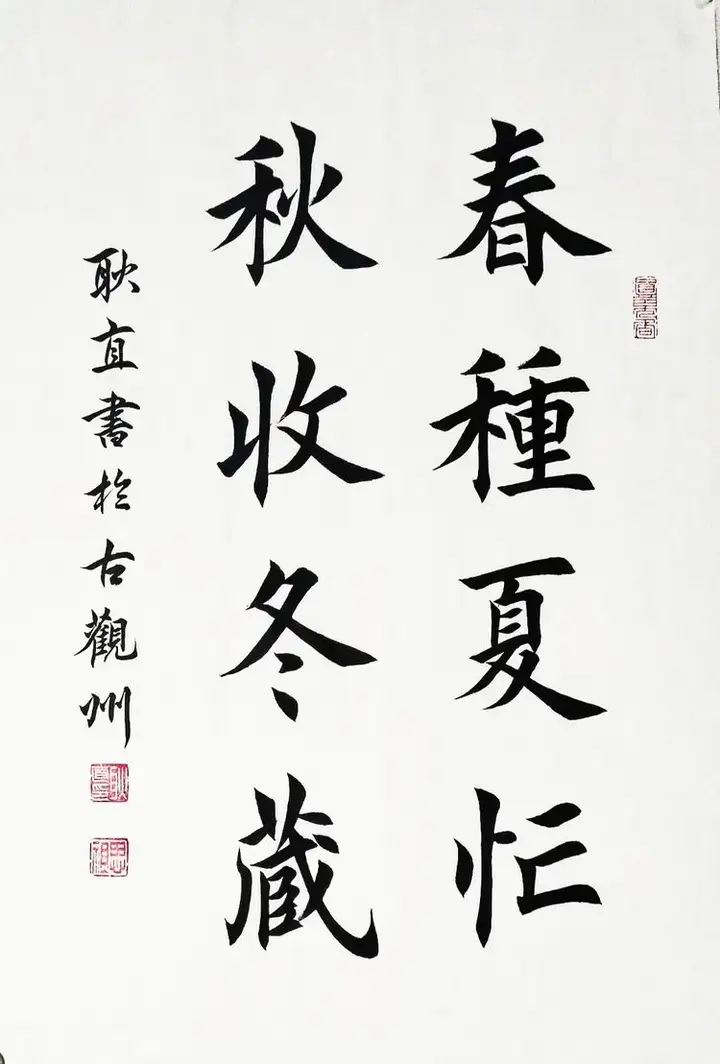 春種夏忙
秋收冬蔵
耿直書於古觀州